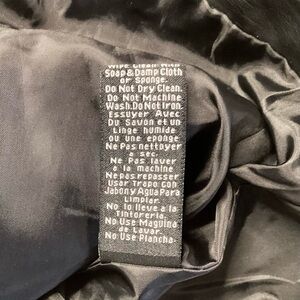 Wipe Clean With
Soap&Damp Cloth
or Sponge.
Do Not Dry Clean.
Do Not Machine
Wash.DoNotIron.
Essuyer Avec
Du Savon et un
Linge humide
ou une eponge.
Ne Pas nettoyer
a sec.
Ne Pas laver
a la machine
Ne pas repasser
Usar Trapo con
Jabon y Agua Para
Limpiar.
No lo lleve a la
Tintoreria.
No Use Maquina
de Lavar.
No Use Plancha.